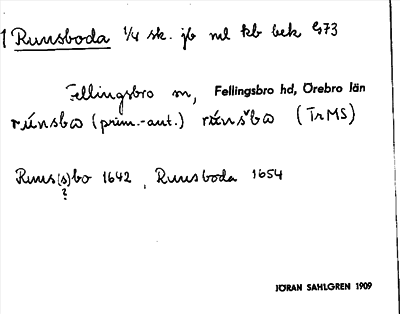 1 Runsboda 1/4 sk. jb ml kb bek G73
Fellingsbro sn, Fellingsbro hd, Örebro län
rúnsbω (prim.-aut.) rúnsˇbω (TrMS)
Runs(s)bo 1642, Runsboda 1654
?
JÖRAN SAHLGREN 1909